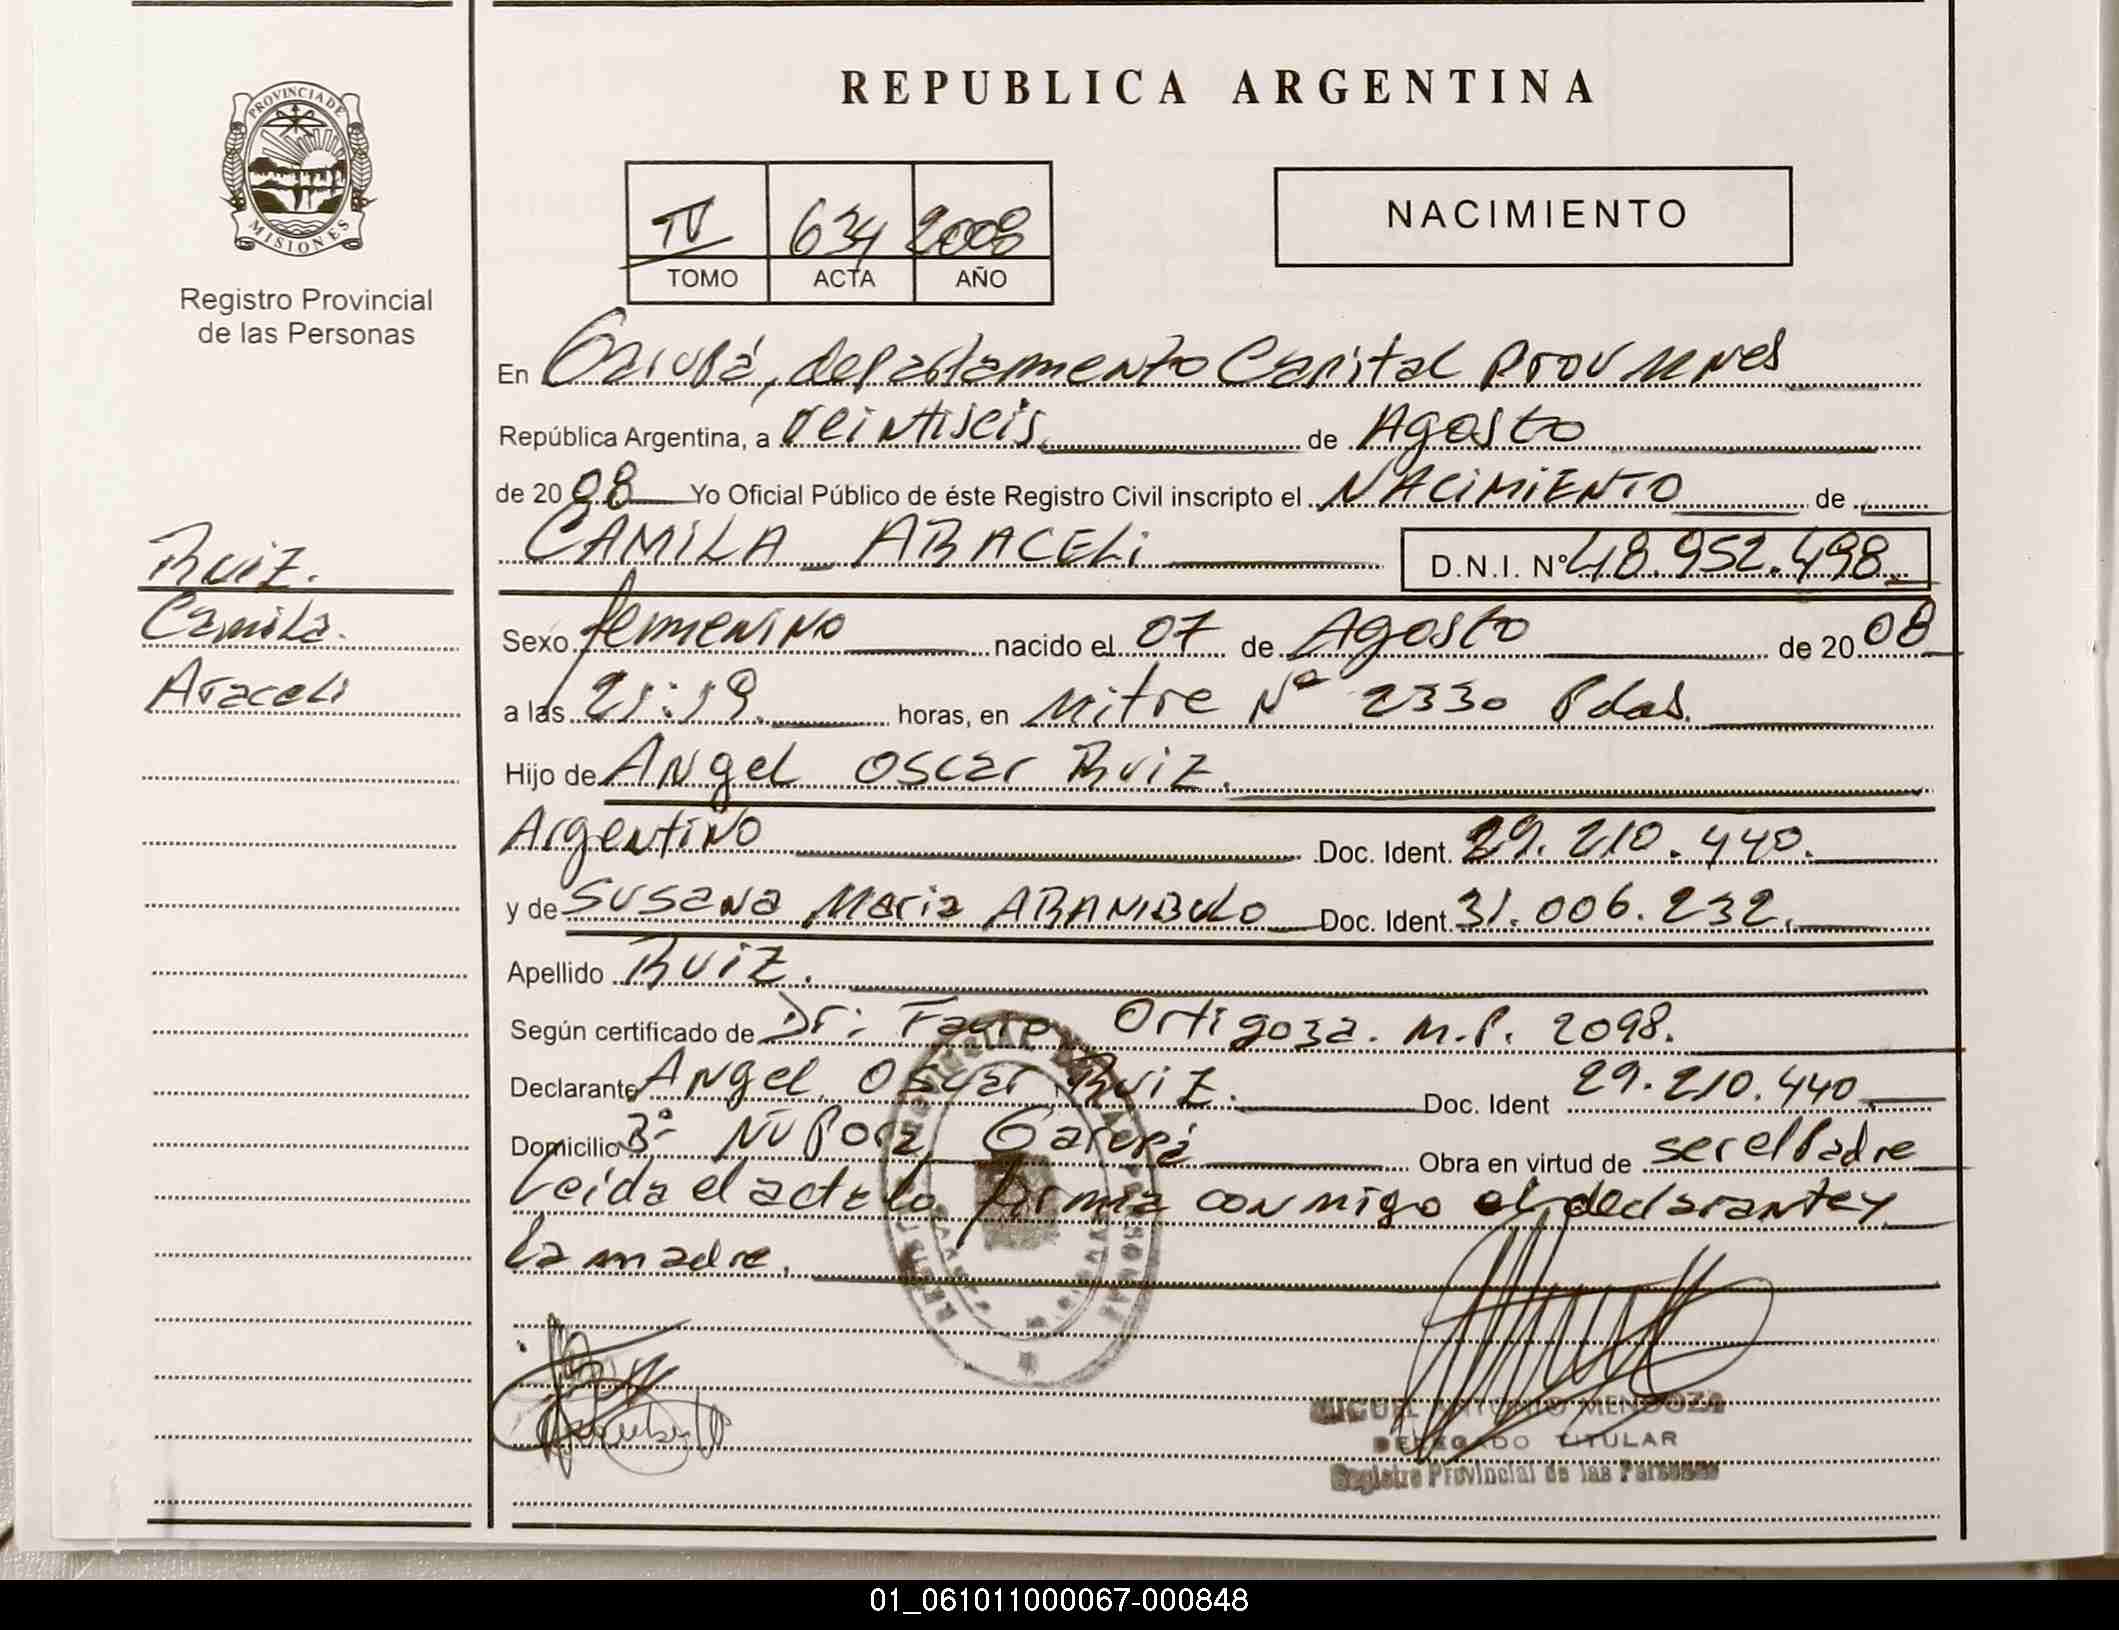 REPUBLICA ARGENTINA
PROVINCIA DE
MISIONES
Registro Provincial
de las Personas
IV 634 2008
TOMO ACTA AÑO
NACIMIENTO
En Garupá, departamento Capital Prov
República Argentina, a veintiseis de Agosto
de 2008 Yo Oficial Público de éste Registro Civil inscripto el NACIMIENTO de
CAMILA ARACELi D.N.I. Nº 48.952.498
Ruiz.
Camila.
Araceli
Sexo femenino nacido el 07 de Agosto de 2008
a las 21:19. horas, en Mitre Nº 2330 Pdas.
Hijo de Angel Oscar Ruiz.
Argentino Doc. Ident. 29.210.440.
y de Susana Maria Doc. Ident. 31.006.232.
Apellido Ruiz.
Según certificado de Dr: Ortigoza. M.P. 2098.
Declarante Angel Oscar Ruiz. Doc. Ident 29.210.440
Domicilio Bº Ñu Pora Garupá Obra en virtud de ser el Padre
Leida el acta la firma conmigo el declarante y
la madre.
MIGUEL ANTONIO MENDOZA
DELEGADO TITULAR
Registro Provincial de las Personas
01_061011000067-000848